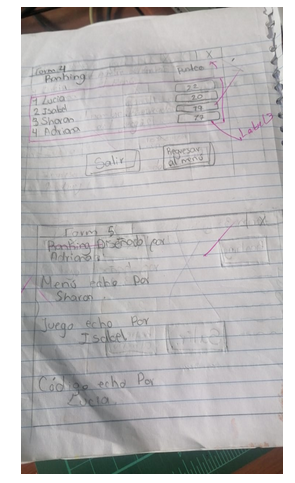 Form 4
X
Ranking
Puntos
1 Lucia
2 Isabel
3 Sharon
4 Adriana
20
19
Labels
Salir
Regresar al menú
Form 5
X
Ranking Diseñado por
Adriana
Menú echo Por
Sharon
Juego echo Por
Isabel
Código echo Por
Lucia